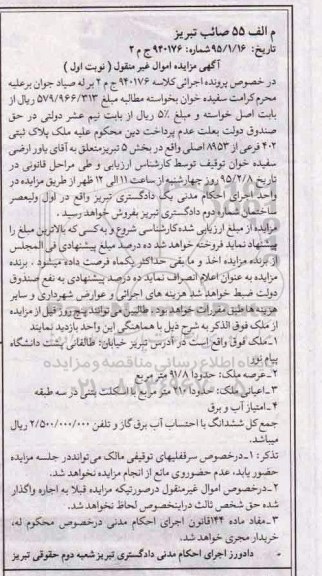 م الف ۵۵ صائب تبریز
تاریخ: ۹۵/۱/۱۶ شماره: ۹۴۰۱۷۶ ج م ۲
آگهی مزایده اموال غیر منقول ( نوبت اول )
در خصوص پرونده اجرائی کلاسه ۹۴۰۱۷۶ ج م ۲ بر له صیاد جوان برعلیه
محرم کرامت سفیده خوان بخواسته مطالبه مبلغ ۵۷۹/۹۶۶/۳۱۳ ریال از
بابت اصل خواسته و مبلغ ۵٪ ریال از بابت نیم عشر دولتی در حق
صندوق دولت بعلت عدم پرداخت دین محکوم علیه ملک پلاک ثبتی
۴۰۲ فرعی از ۸۹۵۳ اصلی واقع در بخش ۵ تبریز متعلق به آقای یاور ارضی
سفیده خوان توقیف توسط کارشناس ارزیابی و طی مراحل قانونی در
تاریخ ۹۵/۲/۸ روز چهارشنبه از ساعت ۱۱ الی ۱۲ ظهر از طریق مزایده در
واحد اجرای احکام مدنی یک دادگستری تبریز واقع در اول ولیعصر
ساختمان شماره دوم دادگستری تبریز بفروش خواهد رسید .
مزایده از مبلغ ارزیابی شده کارشناسی شروع و به کسی که بالاترین مبلغ را
پیشنهاد نماید فروخته خواهد شد ده درصد مبلغ پیشنهادی فی المجلس
از برنده مزایده اخذ و ما بقی حداکثر یکماه فرصت داده میشود . برنده
مزایده به عنوان اعلام انصراف نماید ده درصد پیشنهادی به نفع صندوق
دولت ضبط خواهد شد هزینه های اجرائی و عوارض شهرداری و سایر
هزینه ها طبق مقررات خواهد بود . طالبین می توانند پنج روز قبل از مزایده
از ملک فوق الذکر به شرح ذیل با هماهنگی این واحد بازدید نمایند
۱-ملک فوق واقع است در آدرس تبریز خیابان: طالقانی پشت دانشگاه
پیام نور
۲-عرصه ملک: حدودا ۹۱/۸ متر مربع
۳-اعیانی ملک: حدودا ۲۱۰ متر مربع با اسکلت بتنی در سه طبقه
۴-امتیاز آب و برق
جمع کل ششدانگ با احتساب آب برق گاز و تلفن ۲/۵۰۰/۰۰۰/۰۰۰ ریال
میباشد.
تذکر: ۱-درخصوص سرقفلیهای توقیفی مالک می تواند در جلسه مزایده
حضور یابد، عدم حضور وی مانع از انجام مزایده نخواهد شد.
۲-درخصوص اموال غیرمنقول درصورتیکه مزایده قبلا به اجاره واگذار
شده حق شخص ثالث دراینخصوص لحاظ نخواهد شد.
۳-مفاد ماده ۱۴۴ قانون اجرای احکام مدنی درخصوص محکوم له،
خریدار مجری خواهد شد.
دادورز اجرای احکام مدنی دادگستری تبریز شعبه دوم حقوقی تبریز